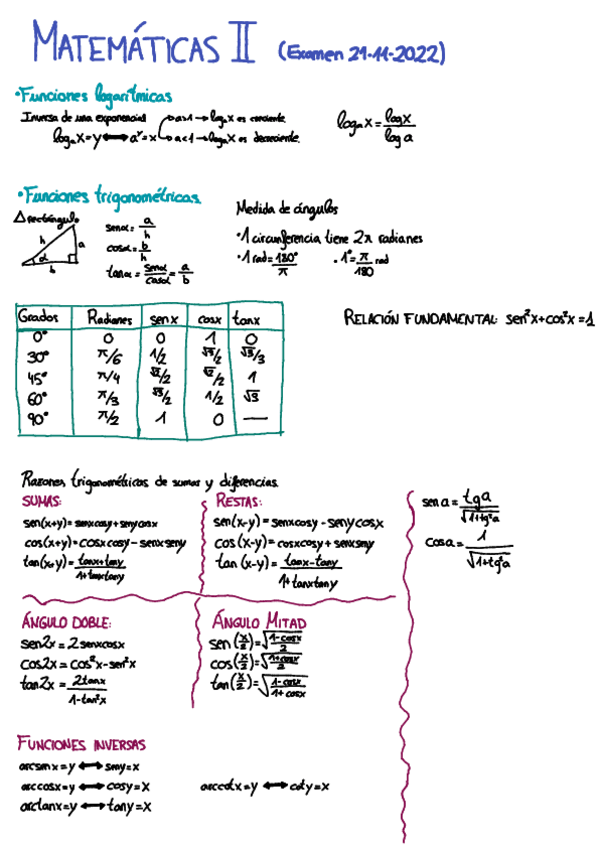 MATEMÁTICAS II (Examen 21-11-2022)
•Funciones logarítmicas
Inversa de una exponencial
a>1→logₐx es creciente
logₐx=y⟷aʸ=x
a<1→logₐx es decreciente.
logₐx=logx/loga
•Funciones trigonométricas
△rectángulo
h
a
α
b
senα=a/h
cosα=b/h
tanα=senα/cosα=a/b
Medida de ángulos
•1 circunferencia tiene 2π radianes
•1 rad=180°/π •1°=π/180 rad
Grados Radianes sen x cosx tanx
0° 0 0 1 0
30° π/6 1/2 √3/2 √3/3
45° π/4 √2/2 √2/2 1
60° π/3 √3/2 1/2 √3
90° π/2 1 0 —
RELACIÓN FUNDAMENTAL: sen²x+cos²x=1
Razones trigonométricas de sumas y diferencias.
SUMAS:
sen(x+y)=senxcosy+senycosx
cos(x+y)=cosxcosy-senxseny
tan(x+y)=tanx+tany/1+tanxtany
RESTAS:
sen(x-y)=senxcosy-senycosx
cos(x-y)=cosxcosy+senxseny
tan(x-y)=tanx-tany/1+tanxtany
sen a=tga/√1+tg²a
cosa=1/√1+tg²a
ÁNGULO DOBLE:
sen2x=2senxcosx
cos2x=cos²x-sen²x
tan2x=2tanx/1-tan²x
ÁNGULO MITAD
sen(x/2)=√1-cosx/2
cos(x/2)=√1+cosx/2
tan(x/2)=√1-cosx/1+cosx
FUNCIONES INVERSAS
arcsinx=y⟷siny=x
arccosx=y⟷cosy=x
arccotx=y⟷coty=x
arctanx=y⟷tany=x